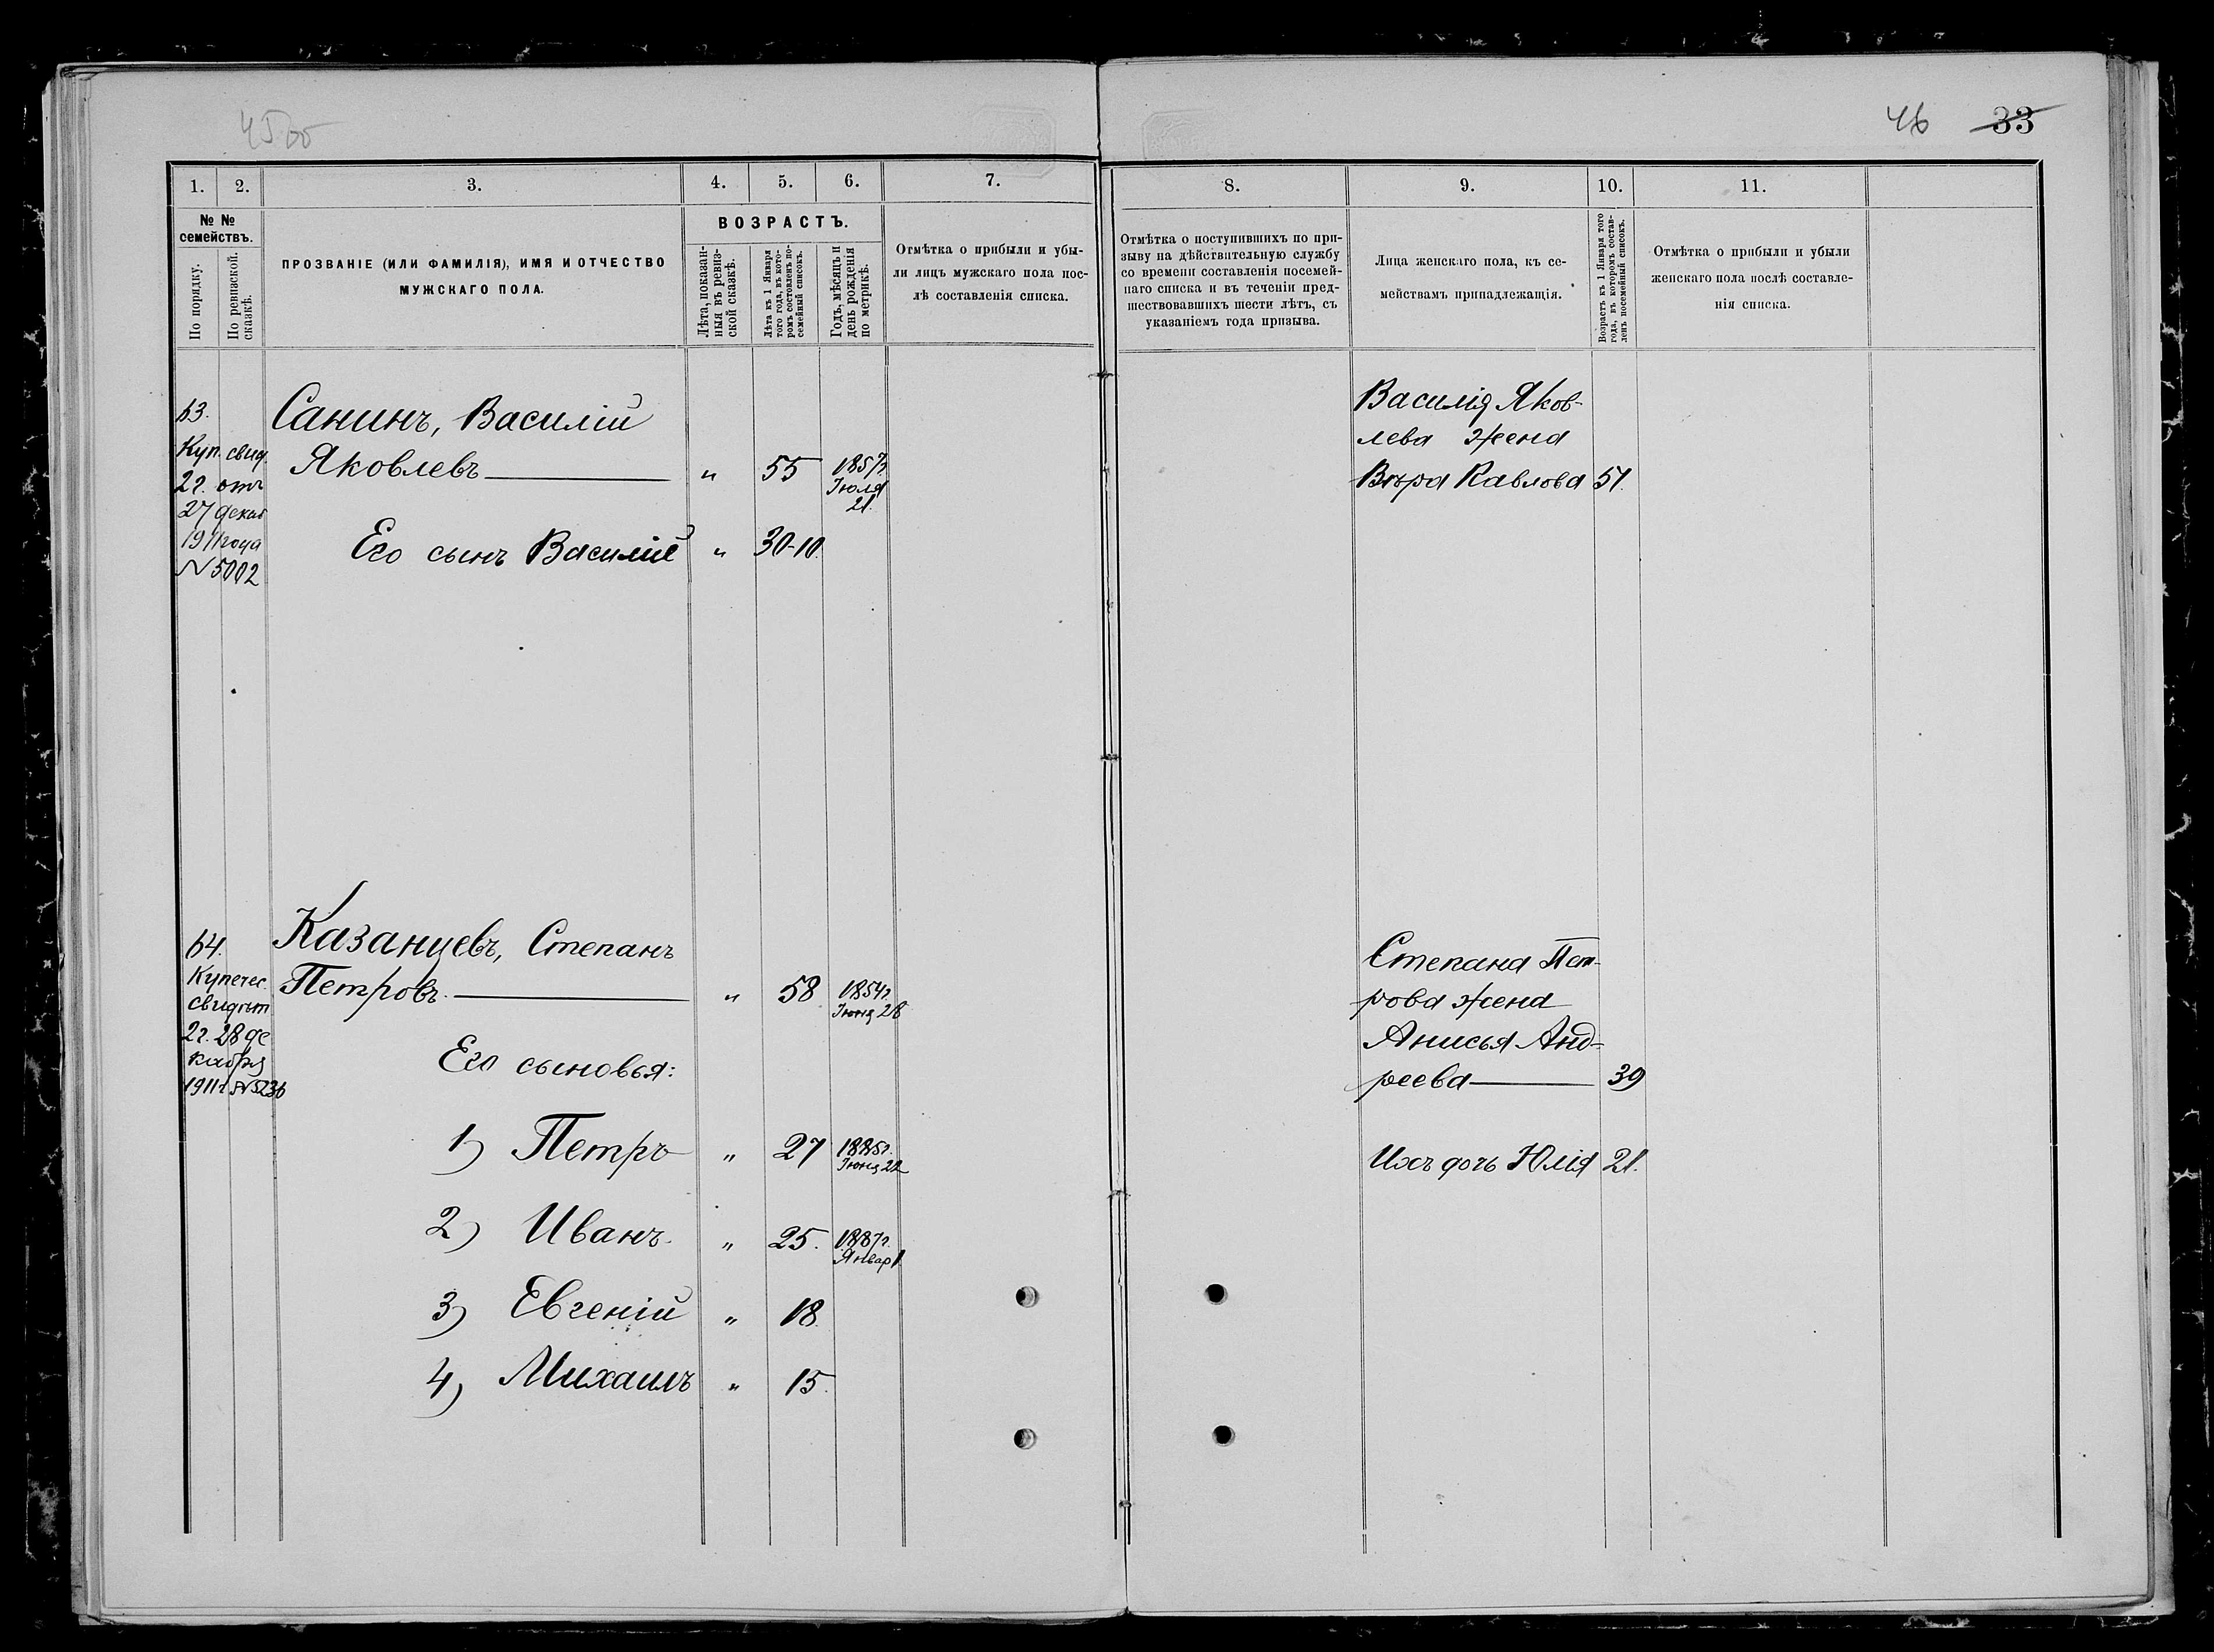 45об
46 33
1. 2. 3. 4. 5. 6. 7.
№ №
семействъ.
По порядку.
По ревизской
сказкѣ.
ПРОЗВАНІЕ (ИЛИ ФАМИЛІЯ), ИМЯ И ОТЧЕСТВО
МУЖСКАГО ПОЛА.
ВОЗРАСТЪ.
Лѣта, показан-
ныя въ ревиз-
ской сказкѣ.
Лѣта къ 1 Января
того года, въ кото-
ромъ составленъ по-
семейный списокъ.
Годъ, мѣсяцъ и
день рожденія
по метрикѣ.
Отмѣтка о прибыли и убы-
ли лицъ мужскаго пола пос-
лѣ составленія списка.
63.
Куп. свид.
2г. отъ
27 декаб
1911 года
N 5002
Санинъ, Василій
Яковлевъ " 55 1857г.
Іюля
21.
Его сынъ Василій " 30-10.
64.
Купечес.
свидѣт
2г. 28 де
кабря
1911г N5236
Казанцевъ, Степанъ
Петровъ. " 58 1854г.
Іюня 28
Его сыновья:
1) Петръ " 27 1885г.
Іюня 22
2) Иванъ. " 25. 1887г.
Январ 1
3) Евгеній " 18.
4) Михаилъ " 15.
8. 9. 10. 11.
Отмѣтка о поступившихъ по при-
зыву на дѣйствительную службу
со времени составленія посемей-
наго списка и въ теченіи пред-
шествовавшихъ шести лѣтъ, съ
указаніемъ года призыва.
Лица женскаго пола, къ се-
мействамъ принадлежащія.
Возрастъ къ 1 Января того
года, въ которомъ состав-
ленъ посемейный списокъ.
Отмѣтка о прибыли и убыли
женскаго пола послѣ составле-
нія списка.
Василія Яков-
лева жена
Вѣра Павлова 51.
Степана Пет-
рова жена
Анисья Анд-
реева 39
Ихъ дочь Юлія 21.